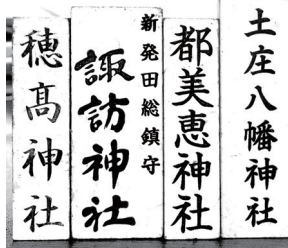 土庄八幡神社
都美恵神社
新発田総鎮守
諏訪神社
穂髙神社